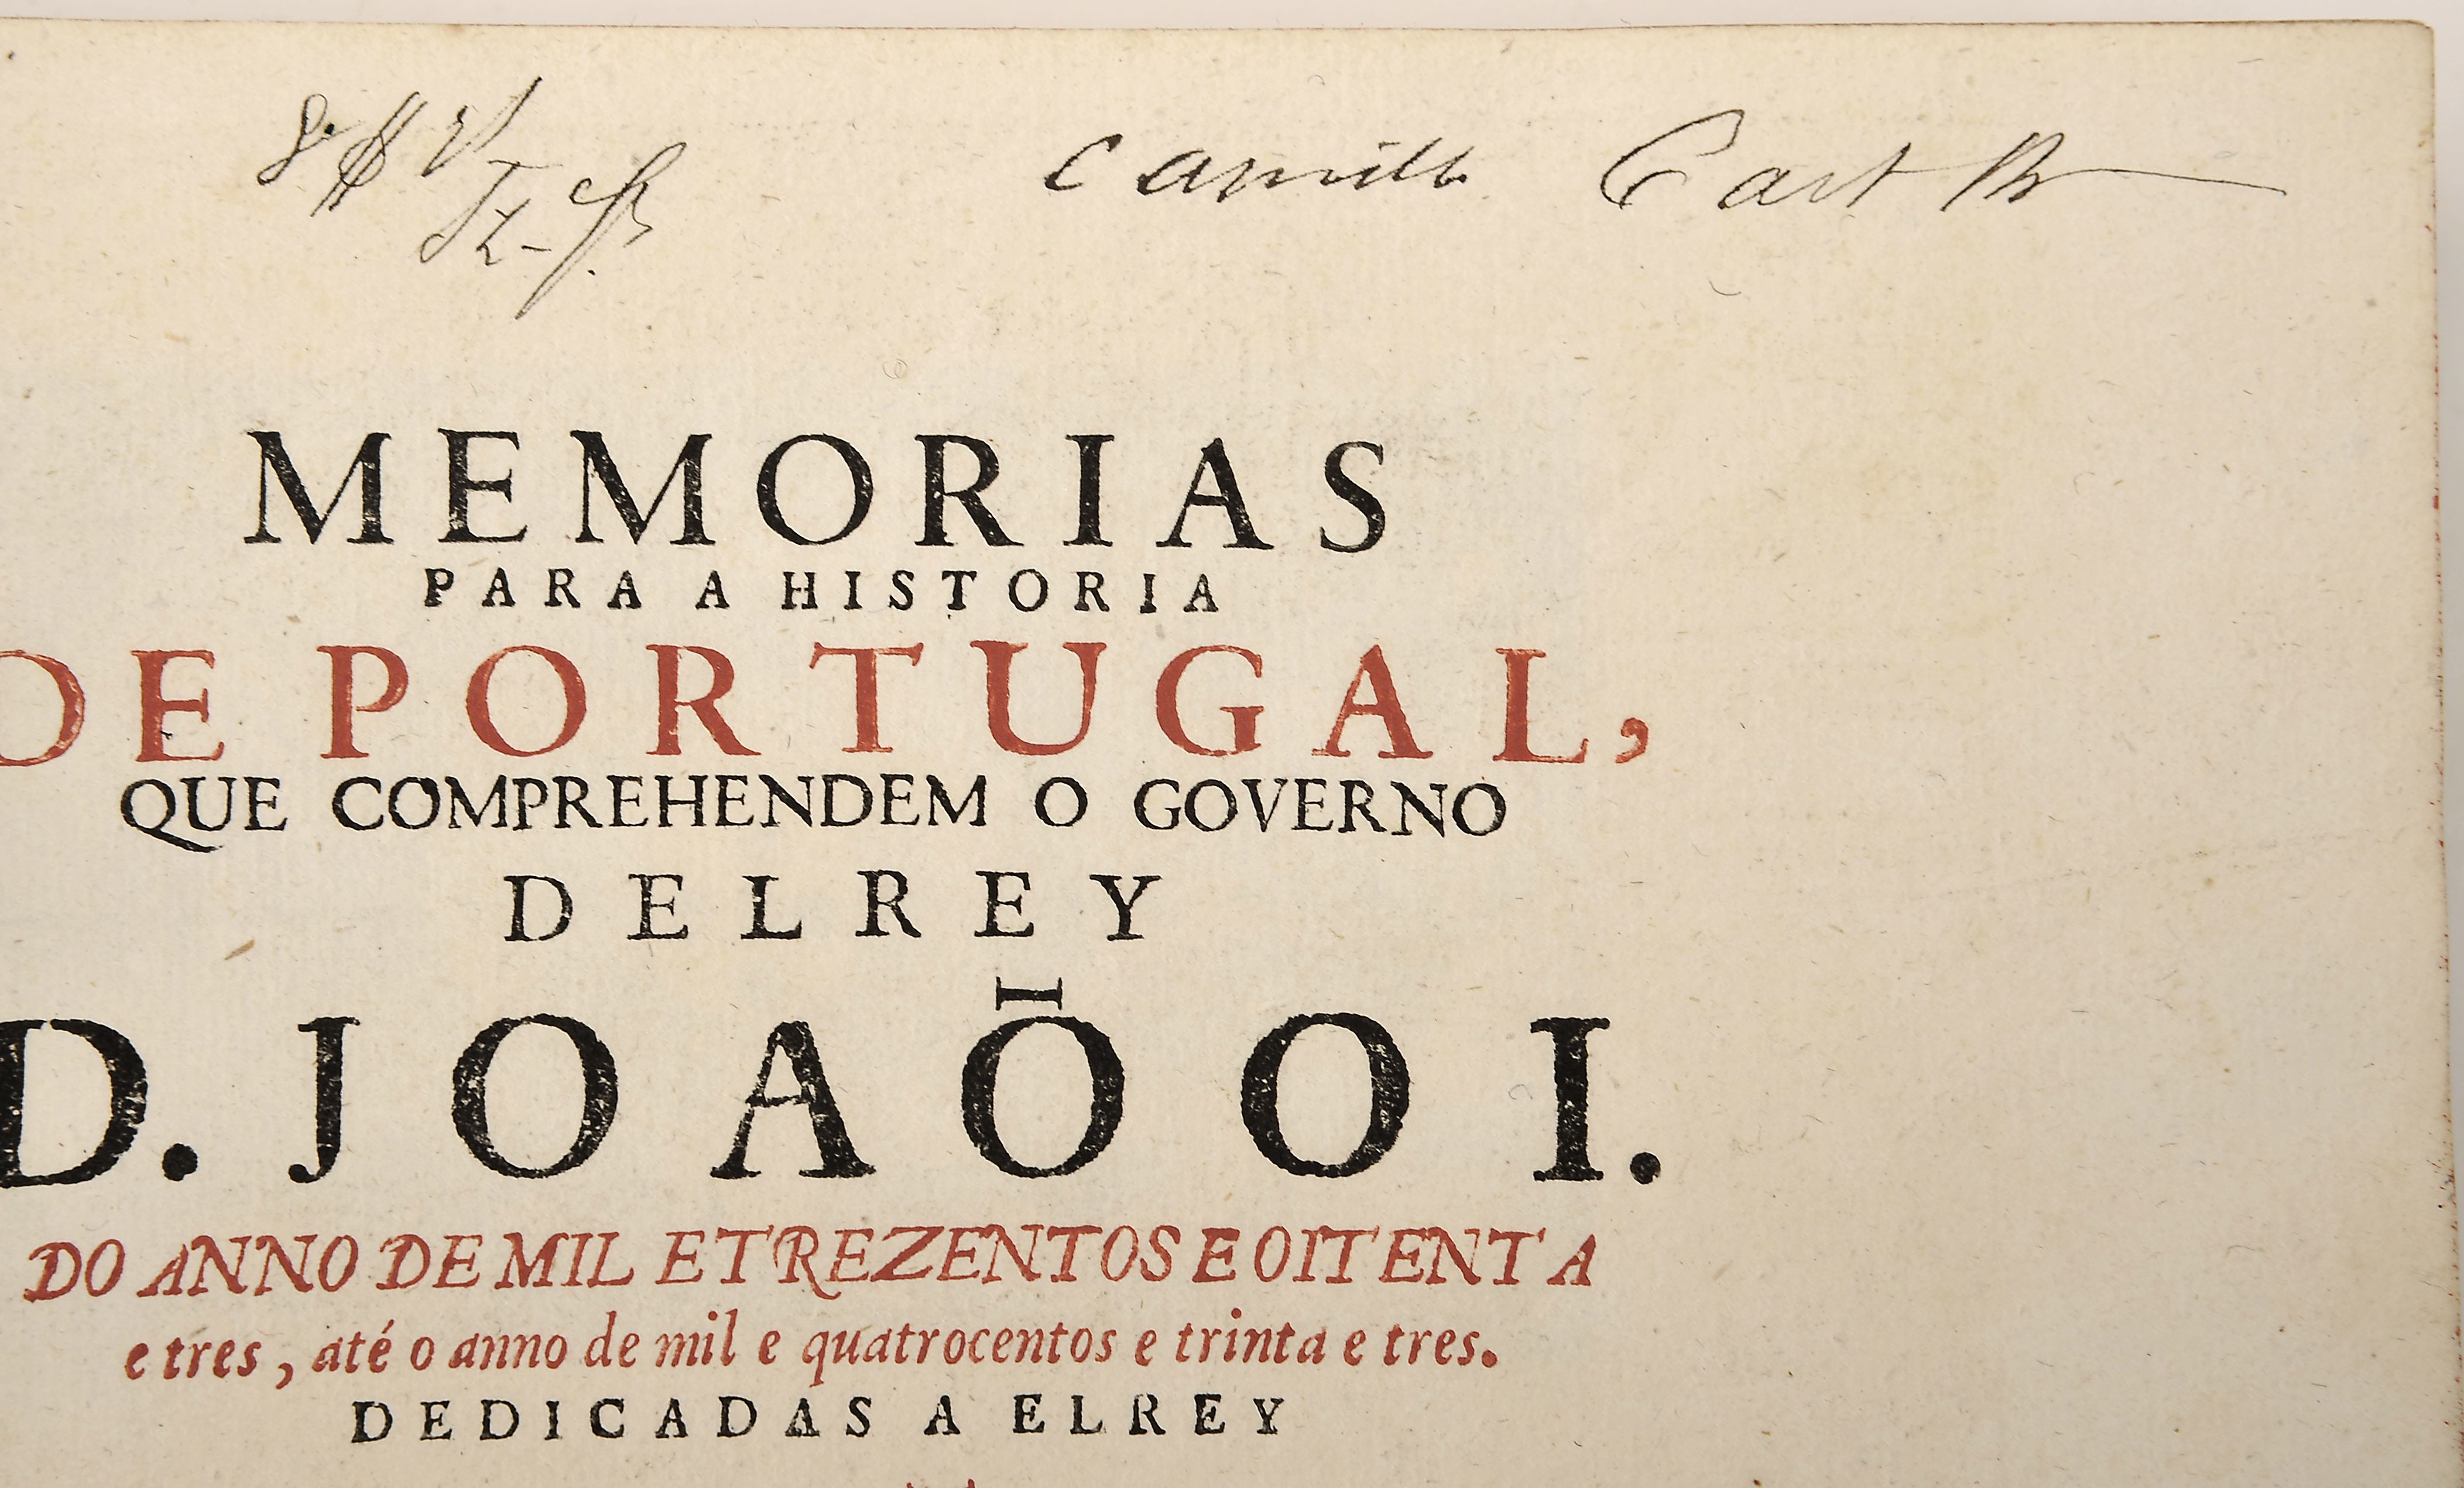 Camillo Cast Br
MEMORIAS
PARA A HISTORIA
DE PORTUGAL,
QUE COMPREHENDEM O GOVERNO
DELREY
D. JOAÕ O I.
DO ANNO DE MIL E TREZENTOS E OITENTA
e tres, até o anno de mil e quatrocentos e trinta e tres.
DEDICADAS A ELREY